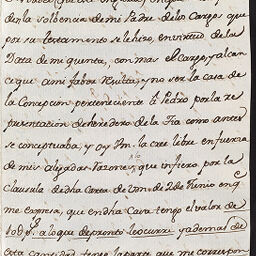 den la solvencia de mi Padre de los Cargos que
por su testamento se le hizo, en virtud de la
Data de mi quenta, con mas el Cargo, y alcan
ce que a mi fabor resulta, y no ser la casa de
la Concepcion perteneciente à Pedro por la re
presentacion de heredero de la Tia como antes
se conceptuaba, y oy la cree libre en fuerza
de mis alegadas razones, que infiero por la
clausula de dha Carta de de 2 de Junio en q
me expresa, que en dha Casa tengo el valor de
a lo que de pronto le ocurre, y ademas de
esta cantidad tengo la parte que me correspon